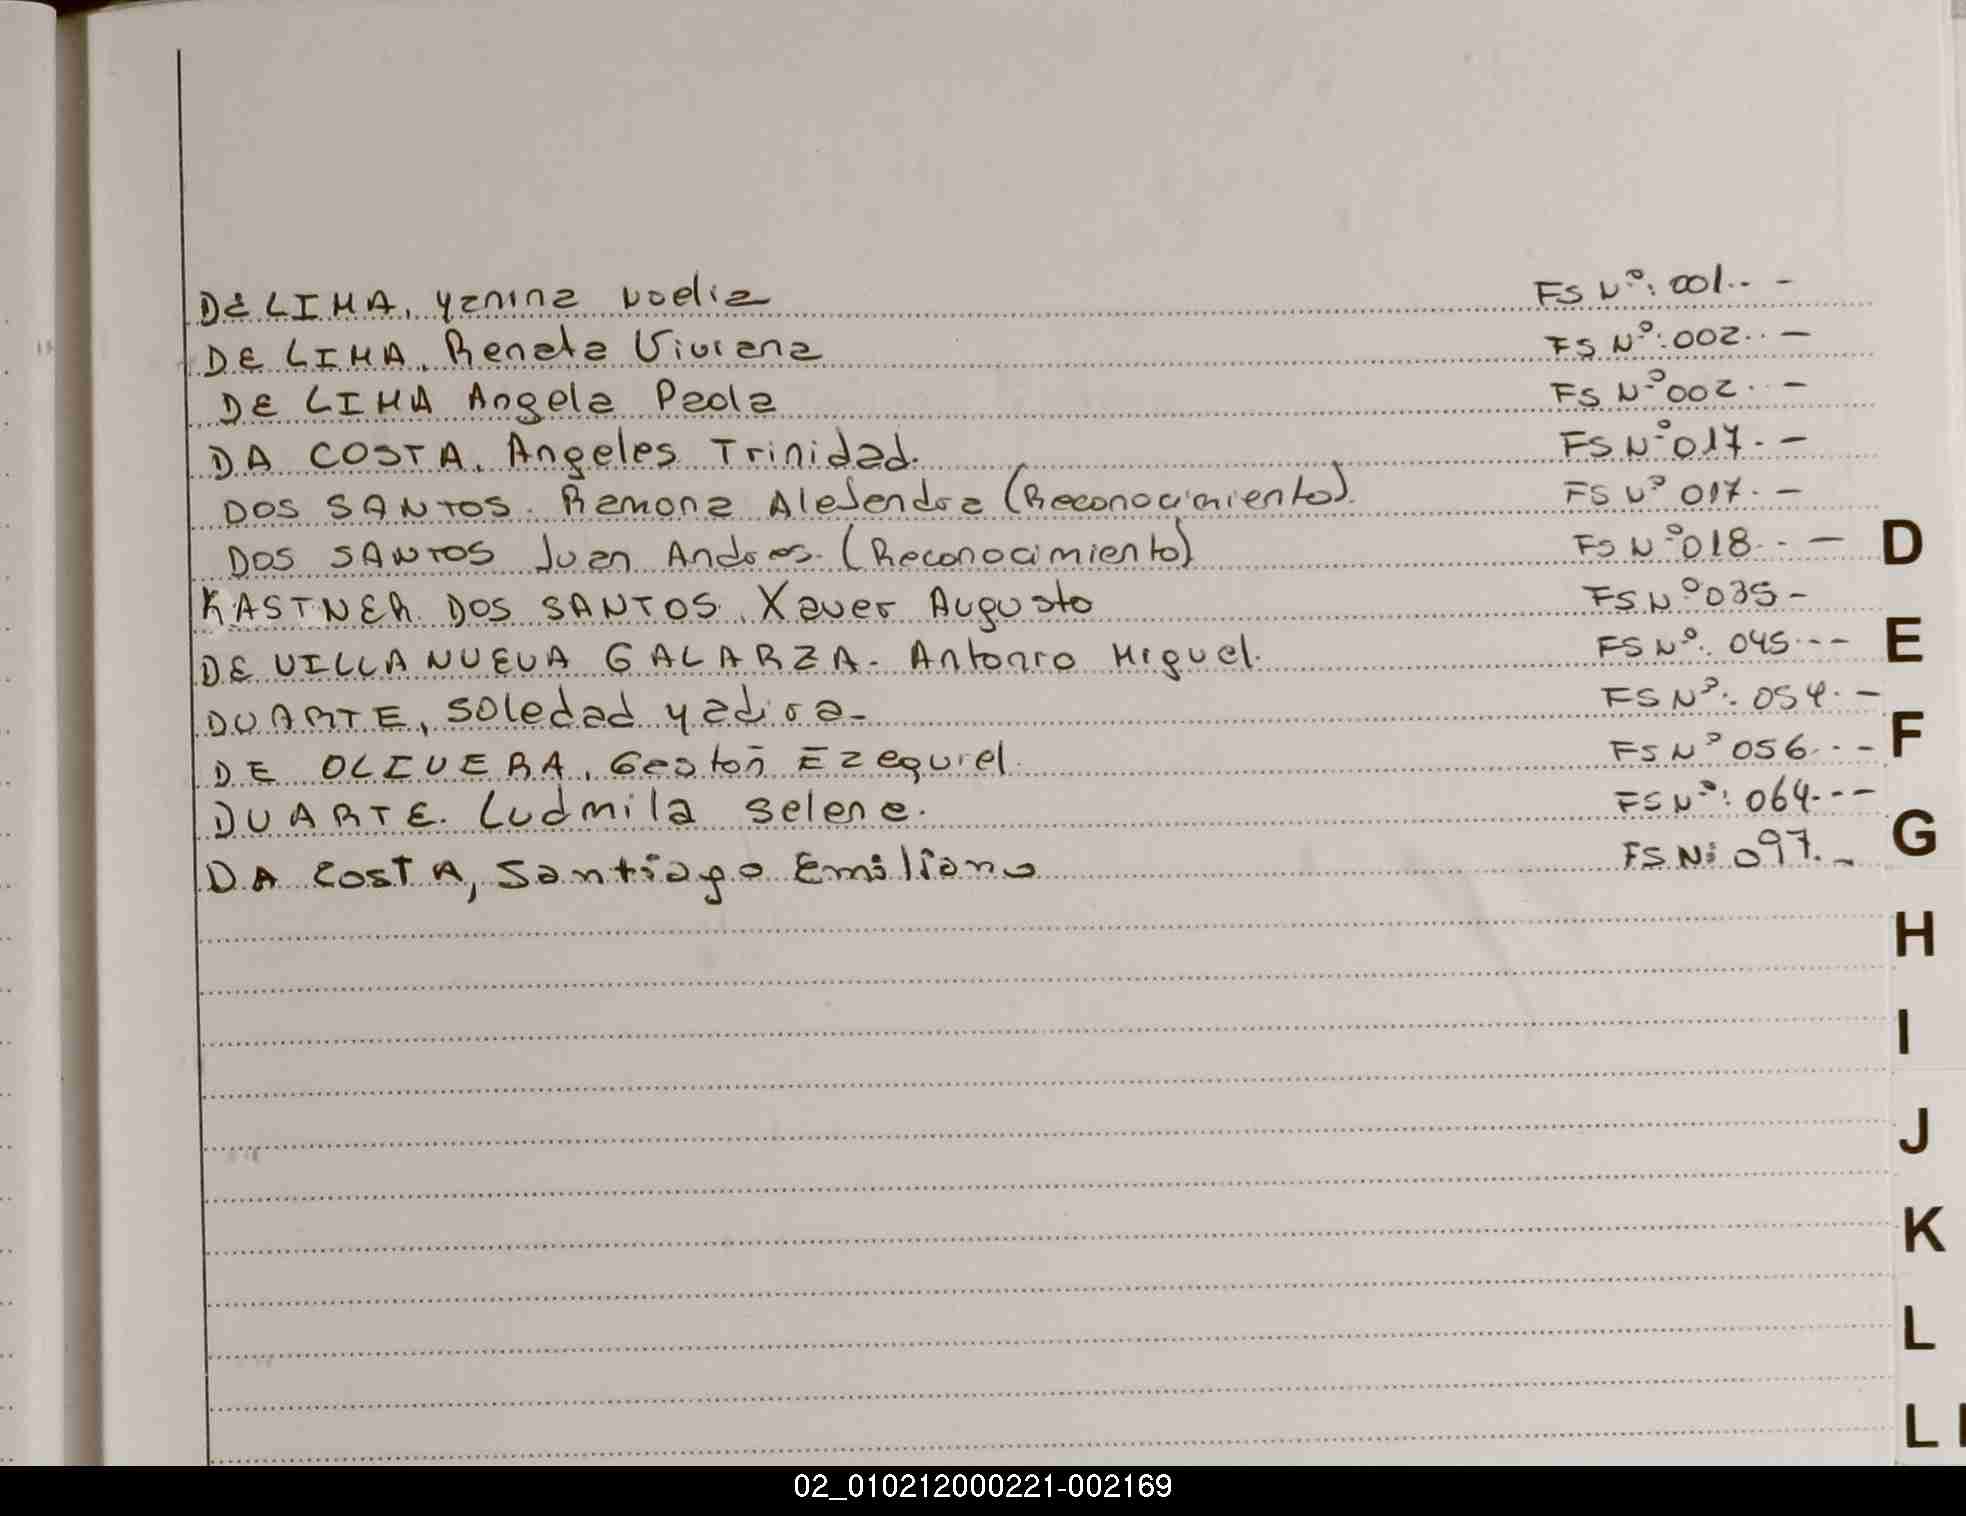 DE LIMA, Yanina Noelia FS Nº: 001.. -
DE LIMA, Renata Viviana FS Nº: 002.. -
DE LIMA Angela Paola FS Nº 002.. -
DA COSTA, Angeles Trinidad. FS Nº 017. -
DOS SANTOS. Ramona Alejandra (Reconocimiento). FS Nº 017. -
DOS SANTOS Juan Andres. (Reconocimiento) FS Nº 018.. -
KASTNER DOS SANTOS, Xaver Augusto FS Nº 035 -
DE VILLANUEVA GALARZA. Antonio Miguel. FS Nº. 045 ---
DUARTE, Soledad Yadira- FS Nº: 054. -
DE OLIVERA, Gastón Ezequiel. FS Nº 056 .--
DUARTE. Ludmila Selene. FS Nº: 064.--
DA COSTA, Santiago Emiliano FS N: 097. -
D
E
F
G
H
I
J
K
L
LL
02_010212000221-002169